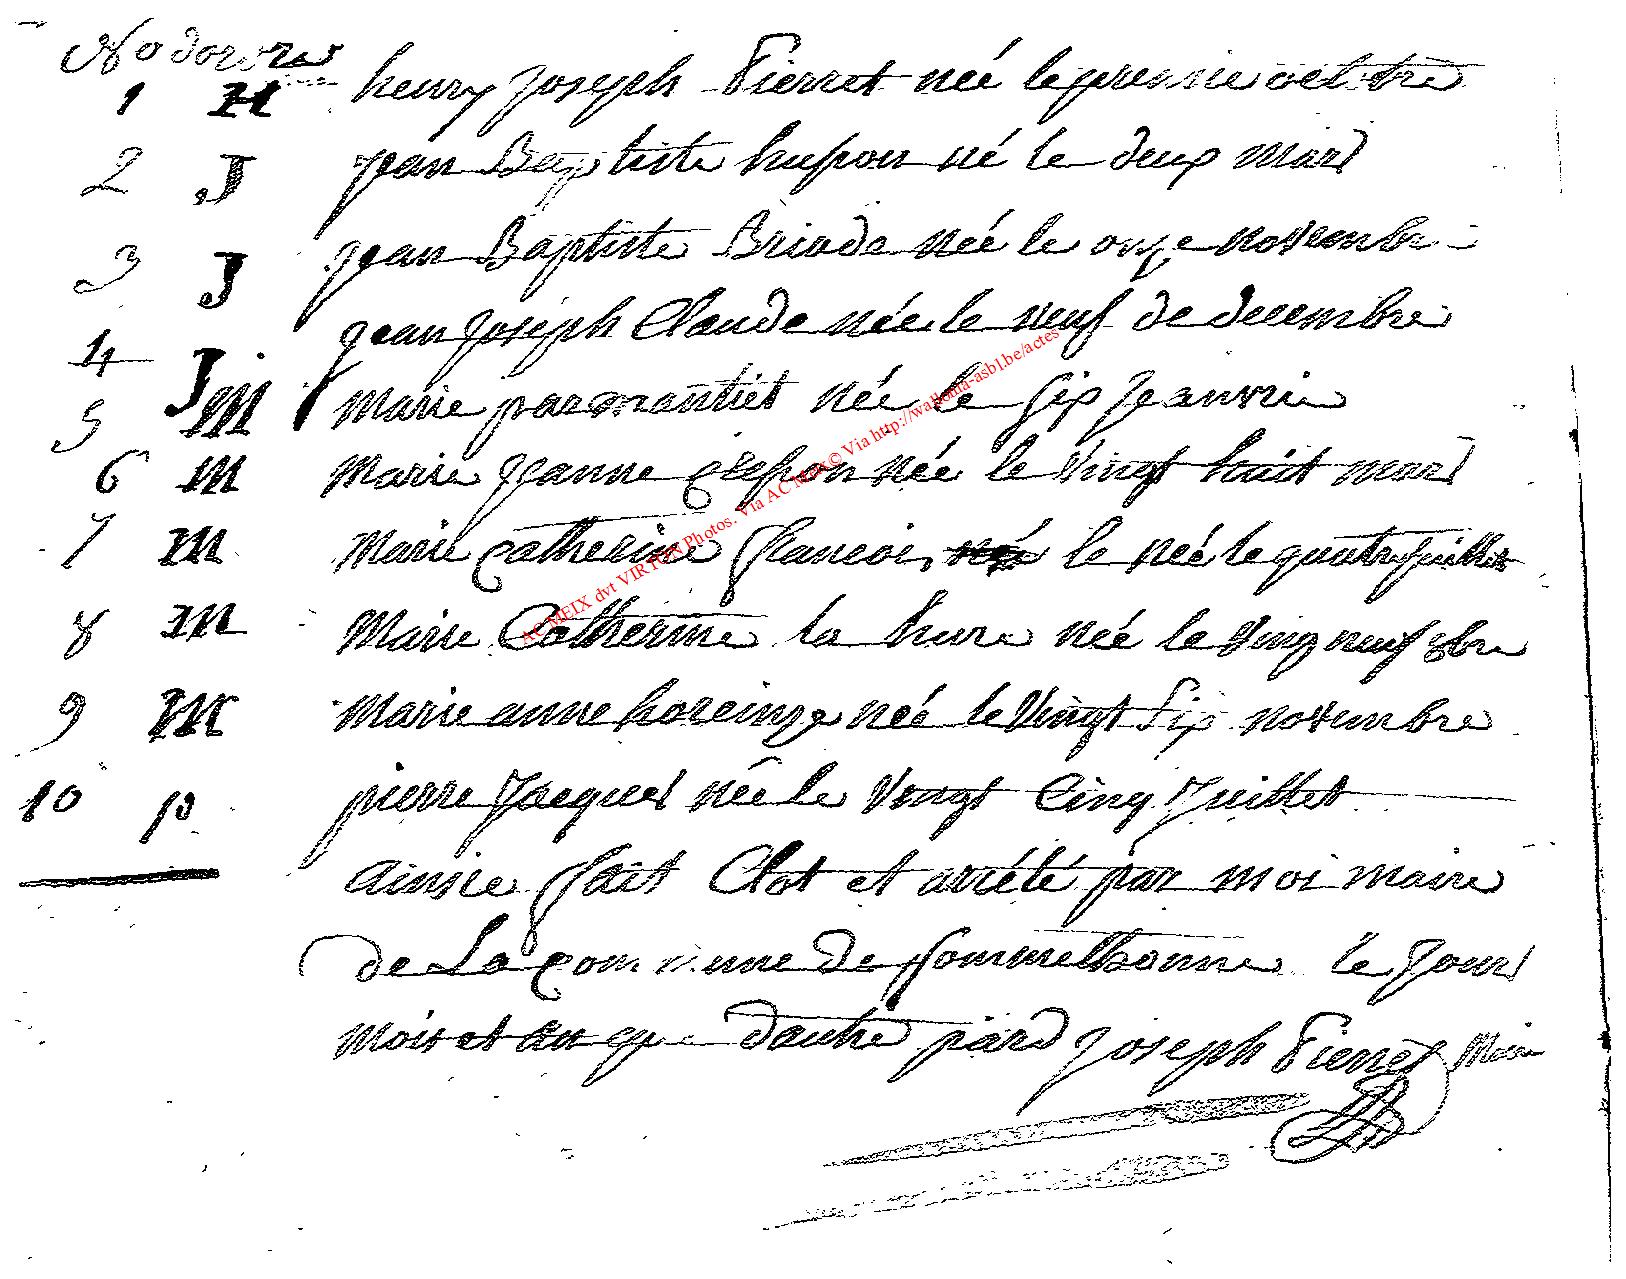 No dordre
1 H henry joseph Pierret néé le premie octobre
2 J jean Baptiste husson né le deux mars
3 J jean Baptiste Briode néé le onze novembre
4 J jean joseph Claude néé le neuf de decembre
5 M Marie parmantiet néé le six jeanvrie
6 M Marie jeanne née le vingt huit mars
7 M Marie catherine francois le néé le quatre juillet
8 M Marie Catherine la hure néé le ving neuf 8bre
9 M Marie anne horeinge néé le vingt six novembre
10 p pierre jacques néé le vingt cinq juillet
ainsie fait Clos et arrété par moi maire
de La commune de sommethonne le jour
mois et an que dautre pard joseph Pierret Maire
AC MEIX dvt VIRTON Photos. Via AC Meix© Via http://wallonia-asbl.be/actes